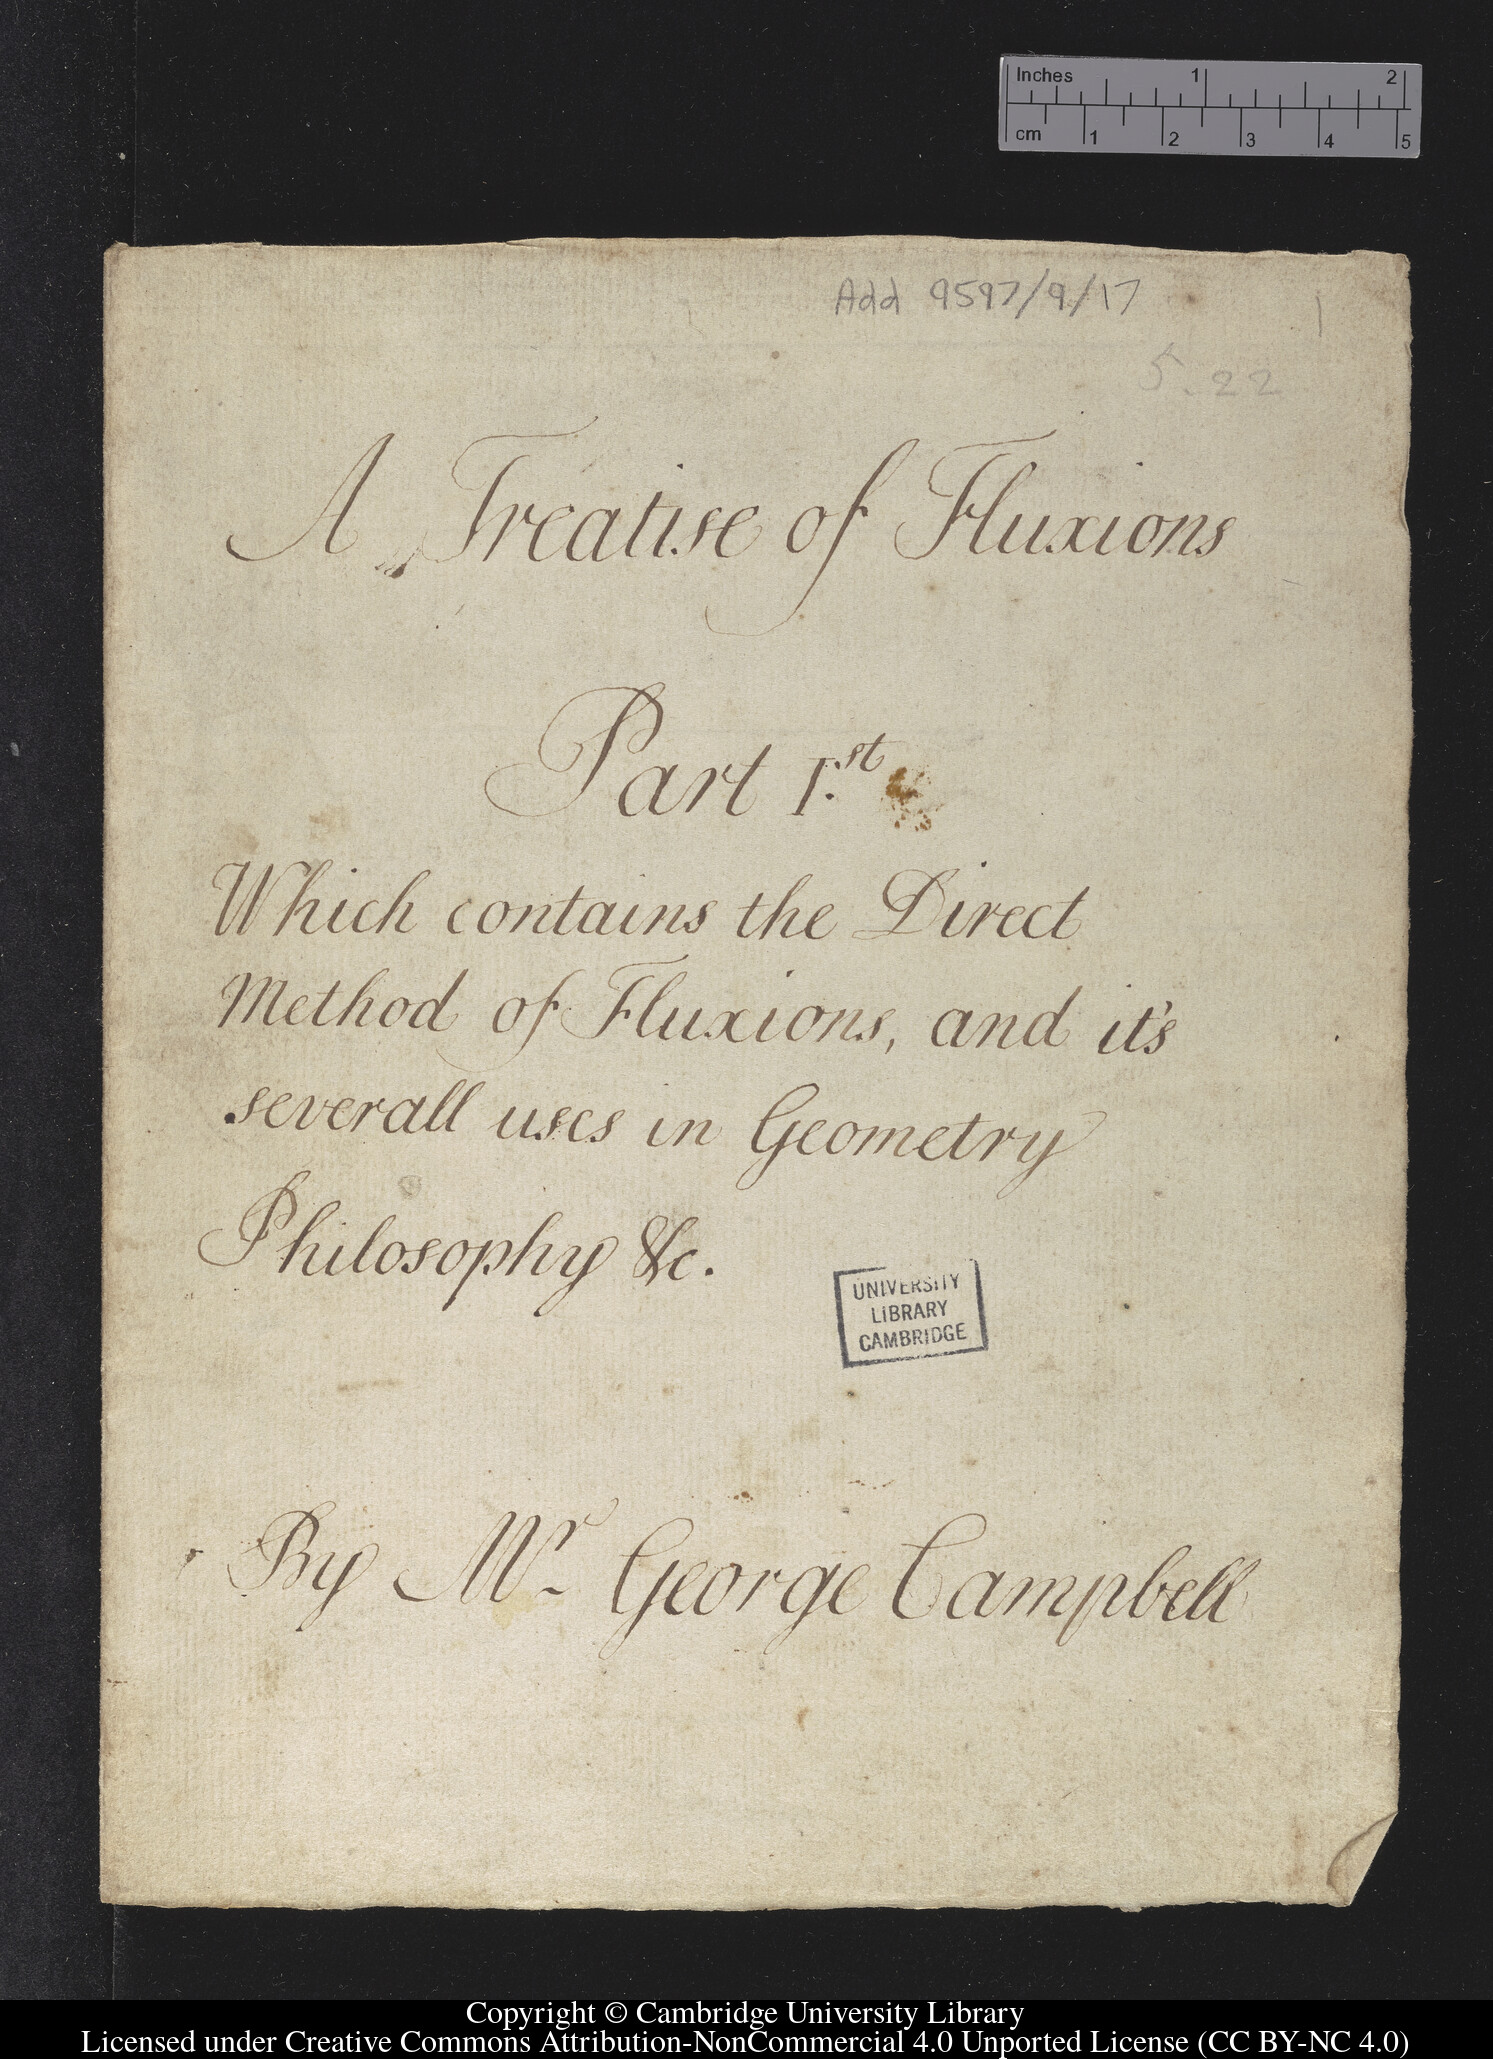 Inches 1 2
cm 1 2 3 4 5
Add 9597/9/17
1
5.22
A Treatise of Fluxions
Part 1.st
Which contains the Direct
Method of Fluxions, and it's
severall uses in Geometry
Philosophy &c.
UNIVERSITY
LIBRARY
CAMBRIDGE
By Mr George Campbell
Copyright © Cambridge University Library
Licensed under Creative Commons Attribution-NonCommercial 4.0 Unported License (CC BY-NC 4.0)